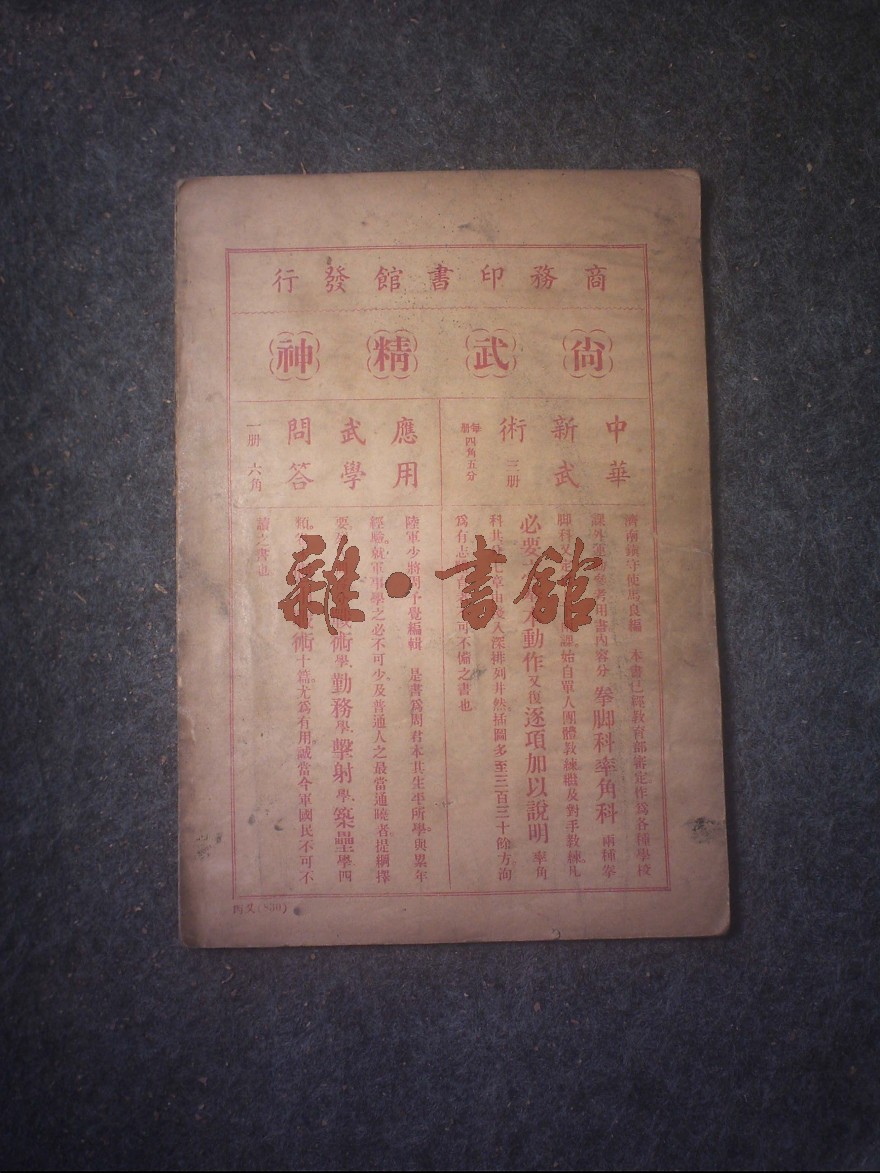 商務印書館發行
尙武精神
中華
新武
術 三册
每册四角五分
濟南鎭守使馬良編 本書已經敎育部審定作爲各種學校
課外運動參考用書內容分拳脚科率角科兩種拳
脚科又 課始自單人團體敎練繼及對手敎練凡
必要 動作又復逐項加以說明率角
科共 章由 入深排列井然插圖多至三百三十餘方洵
爲有志 可不備之書也
應用
武學
問答
一册 六角
陸軍少將周 覺編輯 是書爲周君本其生平所學與累年
經驗就軍事學之必不可少及普通人之最當通曉者提綱擇
要 術學勤務學擊射學築壘學四
類 術十篇尤爲有用誠當今軍國民不可不
讀之書也
丙又(830)
雜·書館